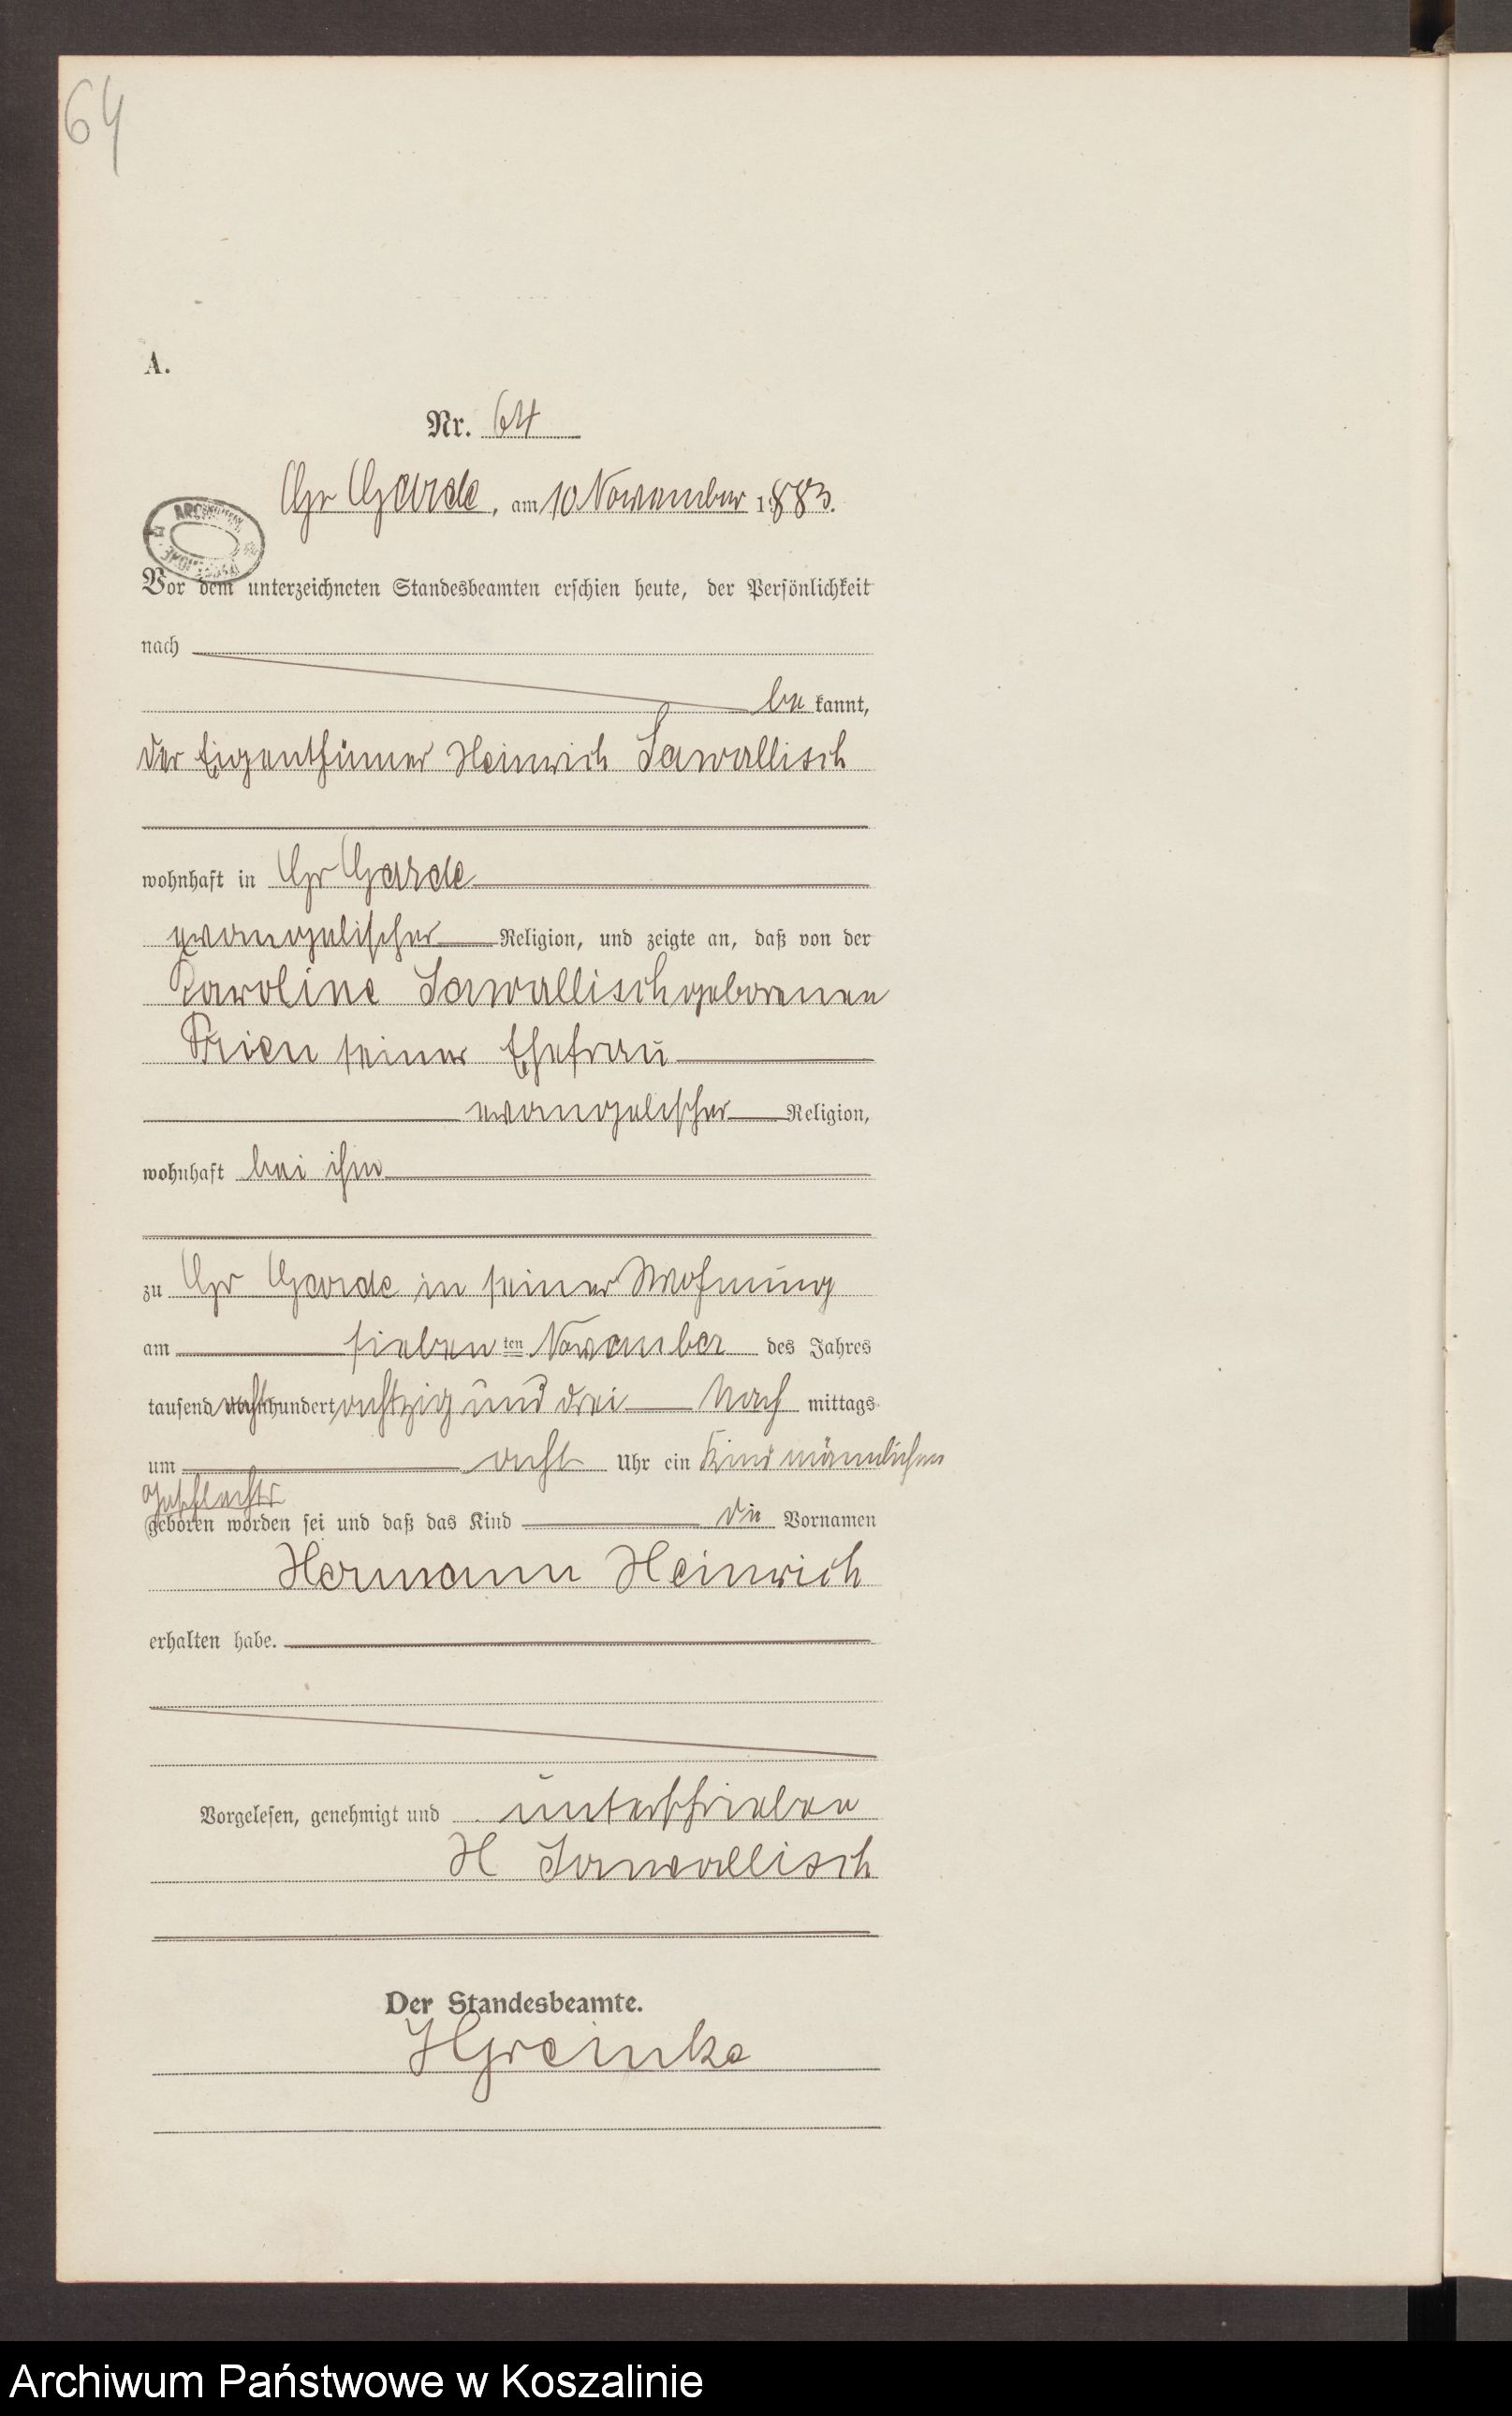 64
A.
Nr. 64
Gr Garde, am 10 November 1883.
ARCHIWUM
Vor dem unterzeichneten Standesbeamten erschien heute, der Persönlichkeit
nach
be kannt,
der Eigenthümer Heinrich Sawallisch
wohnhaft in Gr Garde
evangelischer Religion, und zeigte an, daß von der
Karoline Sawallisch geborenen
Prien seiner Ehefrau
evangelischer Religion,
wohnhaft bei ihm
zu Gr Garde in seiner Wohnung
am sieben ten November des Jahres
tausend acht hundert achtzig und drei Nach mittags
um acht Uhr ein Kind männlichen
Geschlechts
geboren worden sei und daß das Kind die Vornamen
Hermann Heinrich
erhalten habe.
Vorgelesen, genehmigt und unterschrieben
H Sawallisch
Der Standesbeamte.
HGreinke
Archiwum Państwowe w Koszalinie